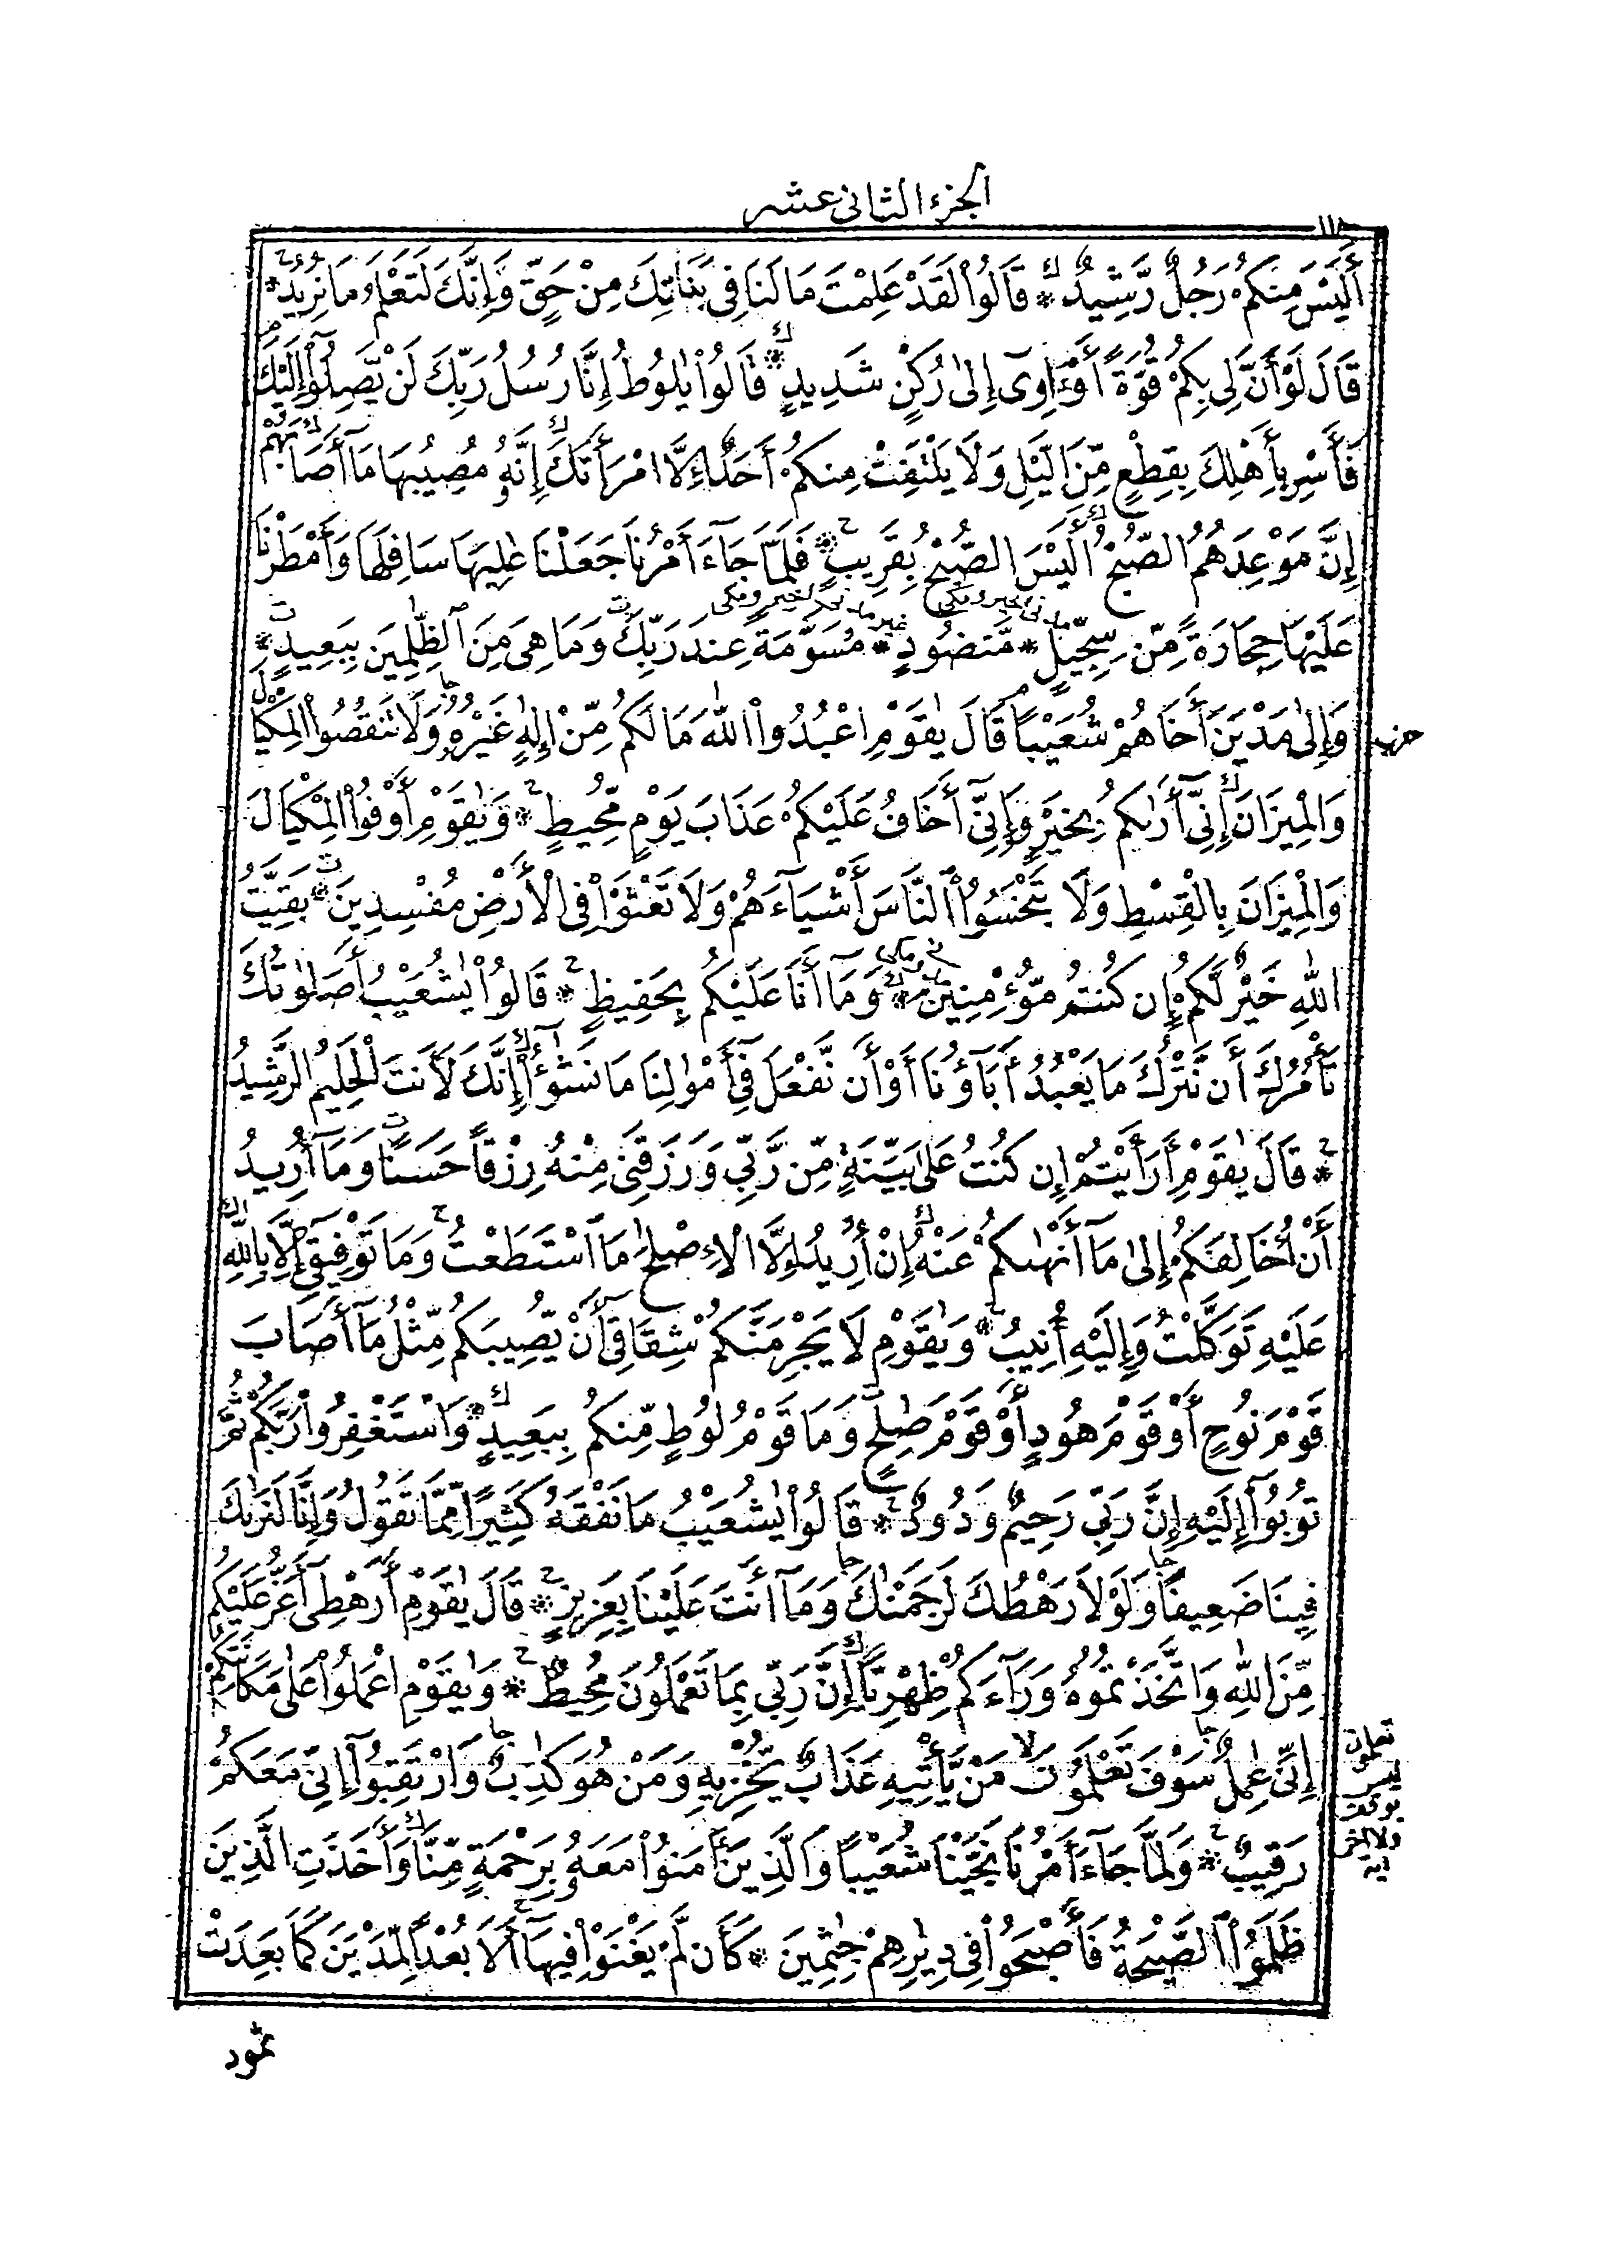 الجزء الثانى عشر
أَلَيْسَ مِنكُمْ رَجُلٌ رَّشِيدٌ * قَالُواْ لَقَدْ عَلِمْتَ مَا لَنَا فِى بَنَاتِكَ مِنْ حَقٍّ وَإِنَّكَ لَتَعْلَمُ مَا نُرِيدُ *
قَالَ لَوْ أَنَّ لِى بِكُمْ قُوَّةً أَوْ ءَاوِىٓ إِلىٰ رُكْنٍ شَدِيدٍ * قَالُواْ يٰلُوطُ إِنَّا رُسُلُ رَبِّكَ لَن يَّصِلُوٓاْ إِلَيْكَ
فَأَسْرِ بِأَهْلِكَ بِقِطْعٍ مِّنَ الَيْلِ وَلَا يَلْتَفِتْ مِنكُمْ أَحَدٌ إِلَّا امْرَأَتَكَ إِنَّهُ مُصِيبُهَا مَآ أَصَابَهُمْ
إِنَّ مَوْعِدَهُمُ الصُّبْحُ أَلَيْسَ الصُّبْحُ بِقَرِيبٍ * فَلَمَّا جَآءَ أَمْرُنَا جَعَلْنَا عٰلِيَهَا سَافِلَهَا وَأَمْطَرْنَا
عَلَيْهَا حِجَارَةً مِّن سِجِّيلٍ * مَّنضُودٍ * مُسَوَّمَةً عِندَ رَبِّكَ وَمَا هِىَ مِنَ ٱلظّٰلِمِينَ بِبَعِيدٍ *
وَإِلىٰ مَدْيَنَ أَخَاهُمْ شُعَيْبًا قَالَ يٰقَوْمِ اعْبُدُواْ اللّٰهَ مَا لَكُم مِّنْ إِلٰهٍ غَيْرُهُ وَلَا تَنقُصُواْ الْمِكْيَالَ
حزب
وَالْمِيزَانَ إِنِّىٓ أَرٰىكُم بِخَيْرٍ وَإِنِّىٓ أَخَافُ عَلَيْكُمْ عَذَابَ يَوْمٍ مُّحِيطٍ * وَيٰقَوْمِ أَوْفُواْ الْمِكْيَالَ
وَالْمِيزَانَ بِالْقِسْطِ وَلَا تَبْخَسُواْ ٱلنَّاسَ أَشْيَآءَهُمْ وَلَا تَعْثَوْاْ فِى الْأَرْضِ مُفْسِدِينَ * بَقِيَّتُ
اللّٰهِ خَيْرٌ لَّكُمْ إِن كُنتُم مُّؤْمِنِينَ * وَمَآ أَنَا عَلَيْكُم بِحَفِيظٍ * قَالُواْ يٰشُعَيْبُ أَصَلَوٰتُكَ
تَأْمُرُكَ أَن نَّتْرُكَ مَا يَعْبُدُ أَبَآؤُنَآ أَوْ أَن نَّفْعَلَ فِىٓ أَمْوٰلِنَا مَا نَشٰٓؤُاْ إِنَّكَ لَأَنتَ الْحَلِيمُ الرَّشِيدُ
* قَالَ يٰقَوْمِ أَرَأَيْتُمْ إِن كُنتُ عَلىٰ بَيِّنَةٍ مِّن رَّبِّى وَرَزَقَنِى مِنْهُ رِزْقًا حَسَنًا وَمَآ أُرِيدُ
أَنْ أُخَالِفَكُمْ إِلىٰ مَآ أَنْهٰىكُمْ عَنْهُ إِنْ أُرِيدُ إِلَّا الْإِصْلٰحَ مَا ٱسْتَطَعْتُ وَمَا تَوْفِيقِىٓ إِلَّا بِاللّٰهِ
عَلَيْهِ تَوَكَّلْتُ وَإِلَيْهِ أُنِيبُ * وَيٰقَوْمِ لَا يَجْرِمَنَّكُمْ شِقَاقِىٓ أَنْ يُّصِيبَكُم مِّثْلُ مَآ أَصَابَ
قَوْمَ نُوحٍ أَوْ قَوْمَ هُودٍ أَوْ قَوْمَ صٰلِحٍ وَمَا قَوْمُ لُوطٍ مِّنكُم بِبَعِيدٍ * وَاسْتَغْفِرُواْ رَبَّكُمْ ثُمَّ
تُوبُوٓاْ إِلَيْهِ إِنَّ رَبِّى رَحِيمٌ وَدُودٌ * قَالُواْ يٰشُعَيْبُ مَا نَفْقَهُ كَثِيرًا مِّمَّا تَقُولُ وَإِنَّا لَنَرٰىكَ
فِينَا ضَعِيفًا وَلَوْلَا رَهْطُكَ لَرَجَمْنٰكَ وَمَآ أَنتَ عَلَيْنَا بِعَزِيزٍ * قَالَ يٰقَوْمِ أَرَهْطِىٓ أَعَزُّ عَلَيْكُم
مِّنَ اللّٰهِ وَاتَّخَذْتُمُوهُ وَرَآءَكُمْ ظِهْرِيًّا إِنَّ رَبِّى بِمَا تَعْمَلُونَ مُحِيطٌ * وَيٰقَوْمِ اعْمَلُواْ عَلىٰ مَكَانَتِكُمْ
إِنِّى عٰمِلٌ سَوْفَ تَعْلَمُونَ مَنْ يَّأْتِيهِ عَذَابٌ يُّخْزِيهِ وَمَنْ هُوَ كٰذِبٌ وَارْتَقِبُوٓاْ إِنِّى مَعَكُمْ
تعلمون
ليس
بوقف
ولا
آية
رَقِيبٌ * وَلَمَّا جَآءَ أَمْرُنَا نَجَّيْنَا شُعَيْبًا وَالَّذِينَ أَمَنُواْ مَعَهُ بِرَحْمَةٍ مِّنَّا وَأَخَذَتِ الَّذِينَ
ظَلَمُواْ ٱلصَّيْحَةُ فَأَصْبَحُواْ فِى دِيٰرِهِمْ جٰثِمِينَ * كَأَن لَّمْ يَغْنَوْاْ فِيهَآ أَلَا بُعْدًا لِّمَدْيَنَ كَمَا بَعِدَتْ
ثمود